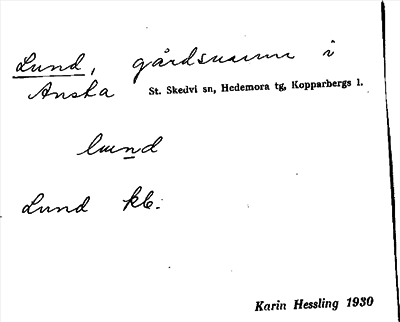 Lund, gårdsnamn i
Anska St. Skedvi sn, Hedemora tg, Kopparbergs l.
lund
Lund kb.
Karin Hessling 1930